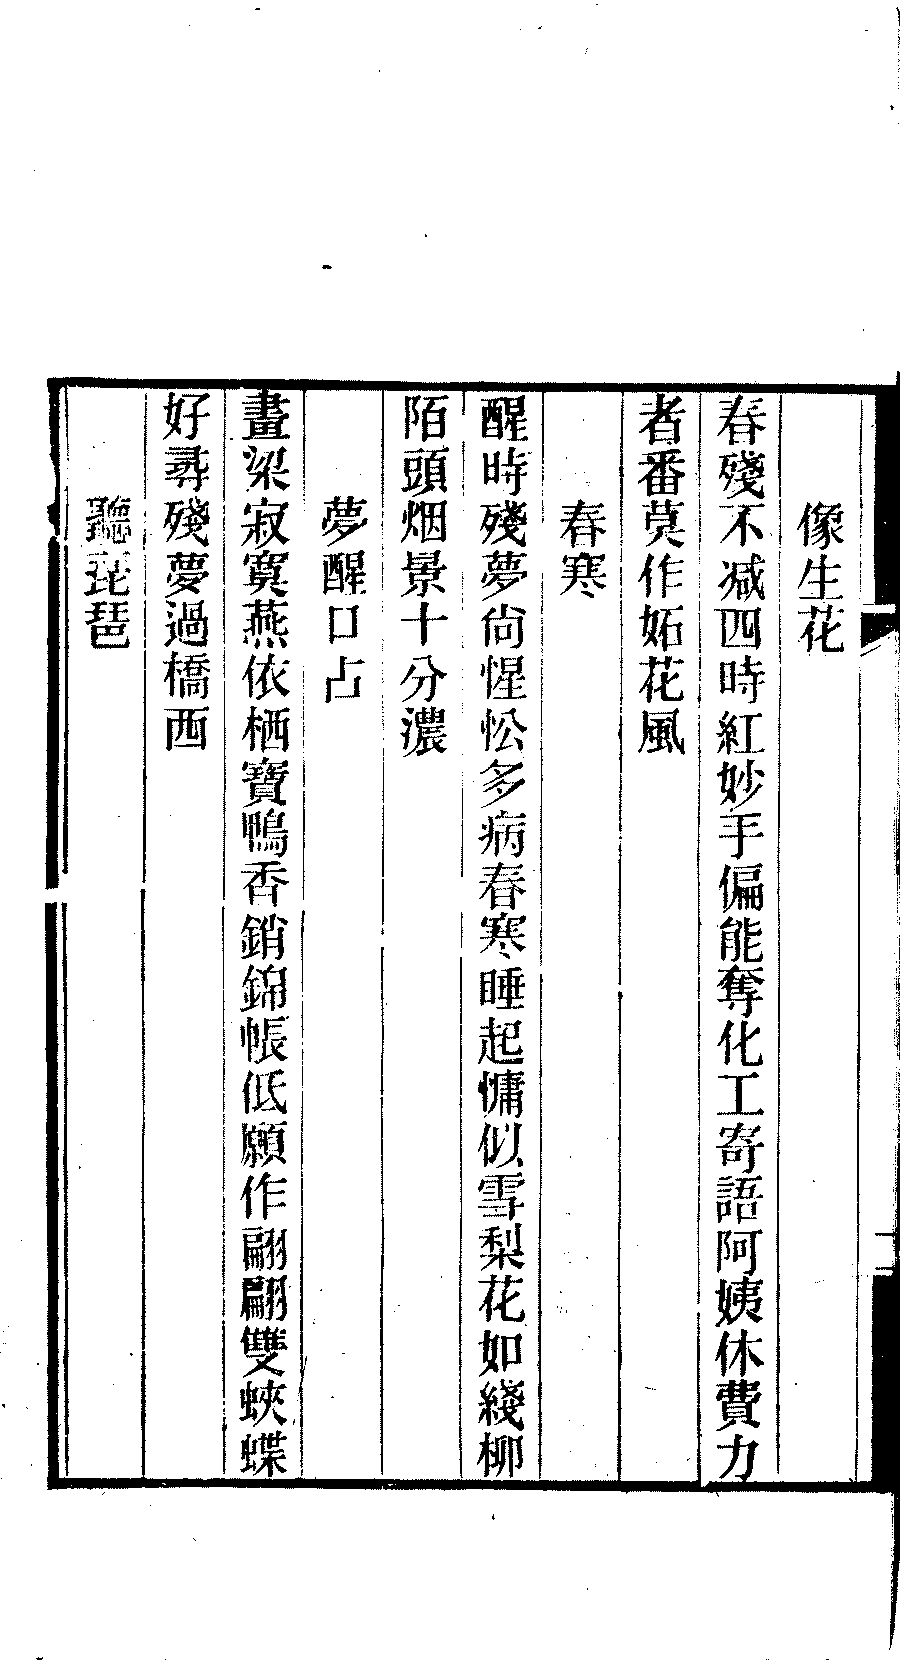 像生花
春殘不減四時紅妙手偏能奪化工寄語阿姨休費力
者番莫作妬花風
春寒
醒時殘夢尚惺忪多病春寒睡起慵似雪梨花如綫柳
陌頭烟景十分濃
夢醒口占
畫梁寂寞燕依栖寶鴨香銷錦帳低願作翩翩雙蛺蝶
好尋殘夢過橋西
聽琵琶